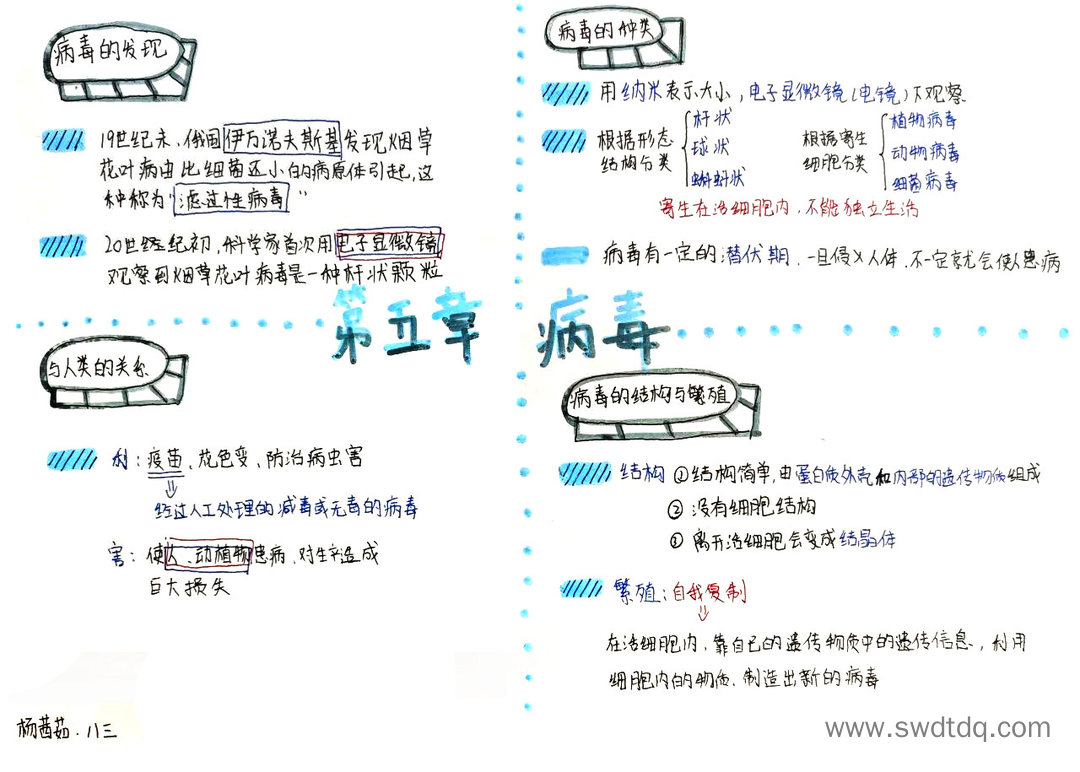 病毒的发现
19世纪末，俄国伊万诺夫斯基发现烟草
花叶病由比细菌还小的病原体引起，这
种称为"滤过性病毒"
20世纪初，科学家首次用电子显微镜
观察到烟草花叶病毒是一种杆状颗粒
病毒的种类
用纳米表示大小，电子显微镜（电镜）下观察
根据形态
结构分类
杆状
球状
蝌蚪状
根据寄生
细胞分类
植物病毒
动物病毒
细菌病毒
寄生在活细胞内，不能独立生活
病毒有一定的潜伏期，一旦侵入人体，不一定就会使人患病
第五章 病毒
与人类的关系
利：疫苗、花色变、防治病虫害
经过人工处理的减毒或无毒的病毒
害：使人、动植物患病，对生产造成
巨大损失
病毒的结构与繁殖
结构 ①结构简单，由蛋白质外壳和内部的遗传物质组成
②没有细胞结构
③离开活细胞会变成结晶体
繁殖：自我复制
在活细胞内，靠自己的遗传物质中的遗传信息，利用
细胞内的物质，制造出新的病毒
杨茜茹·八三
www.swdtdq.com